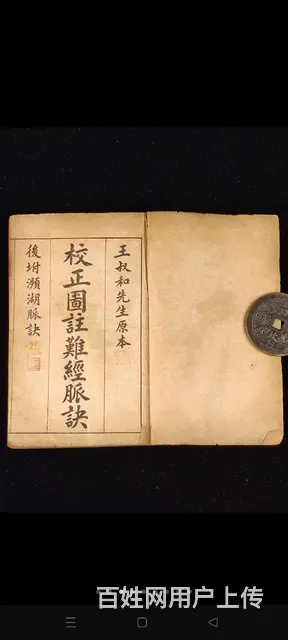 王叔和先生原本
校正圖註難經脈訣
後坿瀕湖脈訣
百姓网用户上传